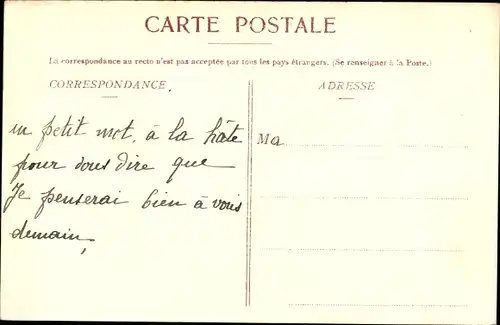 CARTE POSTALE
La correspondance au recto n'est pas acceptée par tous les pays étrangers. (Se renseigner à la Poste.)
CORRESPONDANCE.
un petit mot, à la hâte
pour vous dire que
Je penserai bien à vous
demain,
ADRESSE
Ma